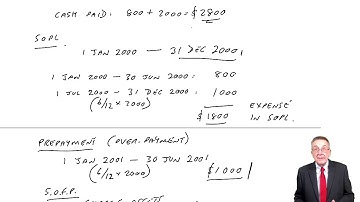 CASH PAID: 800 + 2000 = $2800
SOPL.
1 JAN 2000 — 31 DEC 2000,
1 JAN 2000 — 30 JUN 2000: 800
1 JUL 2000 — 31 DEC 2000: 1000
(6/12 x 2000)
$1800 EXPENSE IN SOPL.
PREPAYMENT (OVER-PAYMENT)
1 JAN 2001 — 30 JUN 2001
(6/12 x 2000) $1000
S.O.F.P.